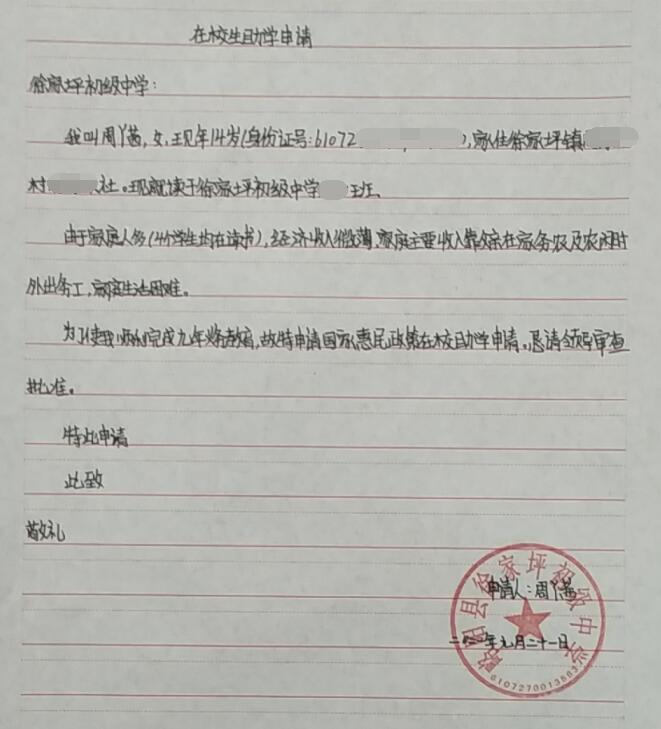 在校生助学申请
徐家坪初级中学：
我叫周丫茜，女，现年14岁(身份证号:61072),家住徐家坪镇
村社。现就读于徐家坪初级中学班。
由于家庭人多(4个学生均在读书)，经济收入微薄，家庭主要收入靠父亲在家务农及农闲时
外出务工，家庭生活困难。
为了使我顺利完成九年义务教育，故特申请国家惠民政策在校助学申请。恳请领导审查
批准。
特此申请
此致
敬礼
略阳县徐家坪初级中学
申请人：周丫茜
年九月二十一日
6107270013563